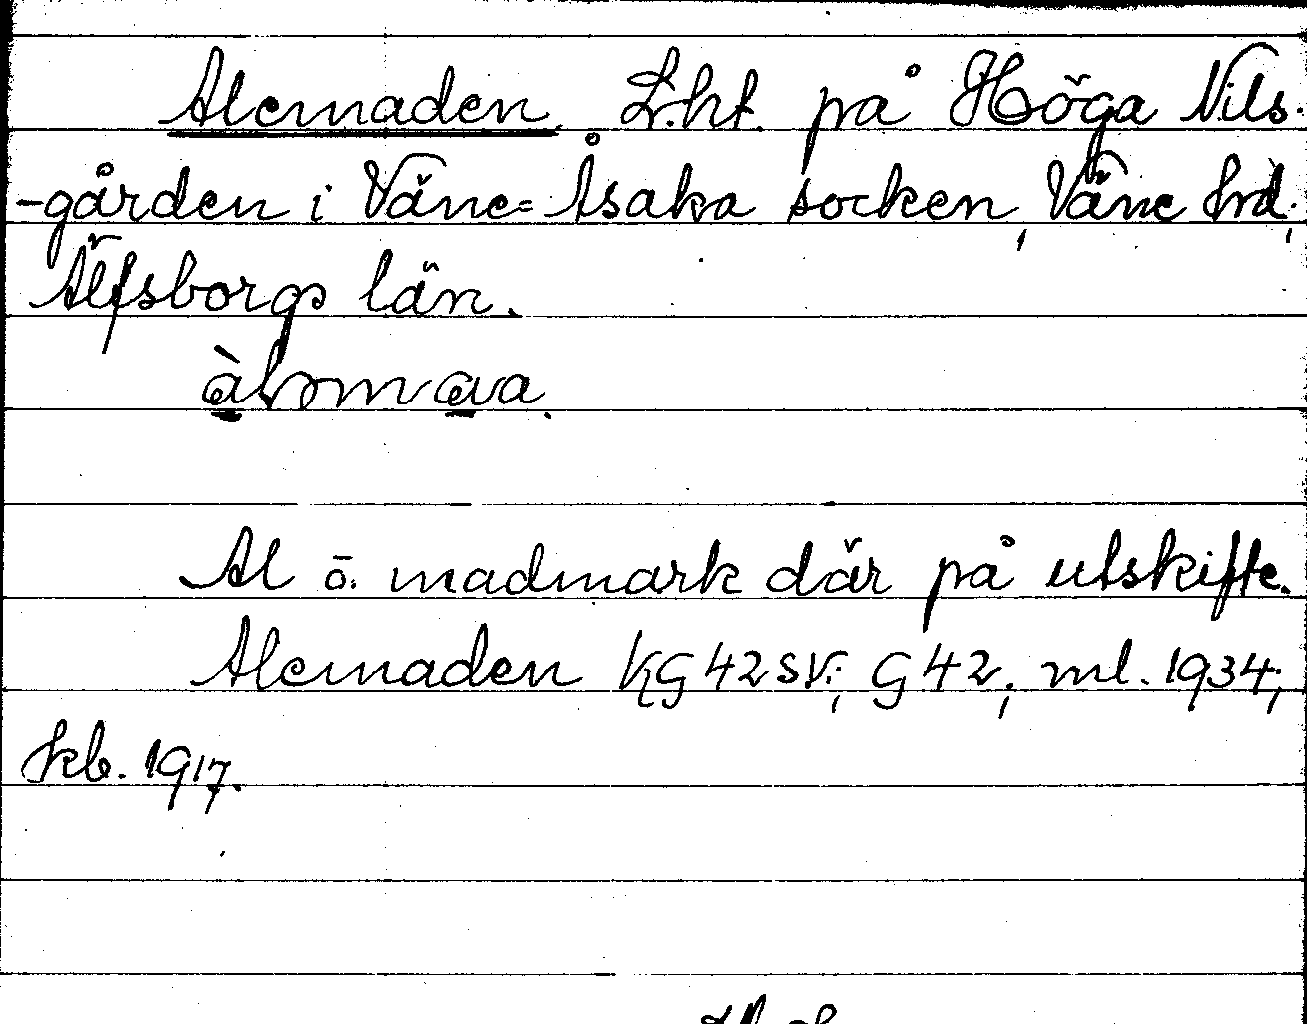 Alemaden. L.ht. på Höga Nils-
-gården i Väne=Åsaka socken, Väne hrd,
Älfsborgs län.
Al o. madmark där på utskifte.
Alemaden KG 42 SV.; G 42; ml. 1934;
skb. 1917.